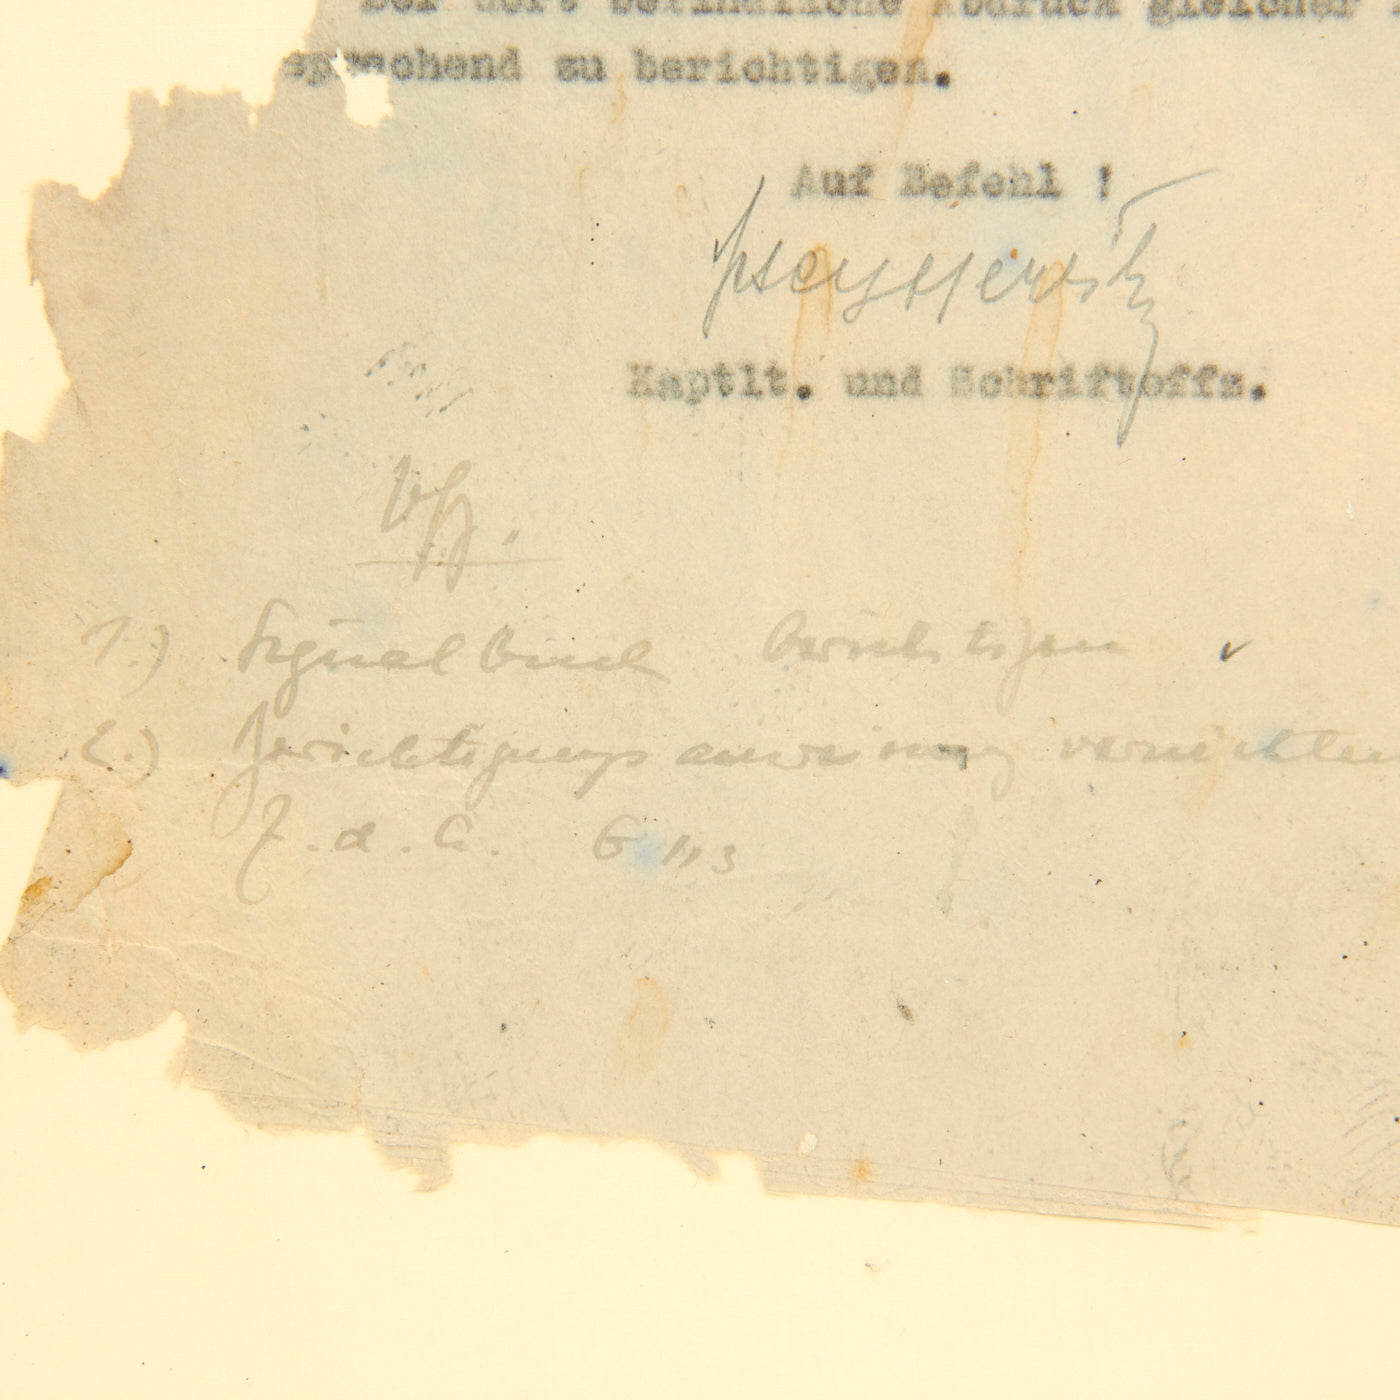 Der dort befindliche Abdruck gleicher
sprechend zu berichtigen.
Auf Befehl !
Kaptlt. und Schriftoffz.
Vfg.
1.) Signalbuch berichtigen ✓
2.) Berichtigungsanweisung vernichten
Z. d. A. 6 III 3